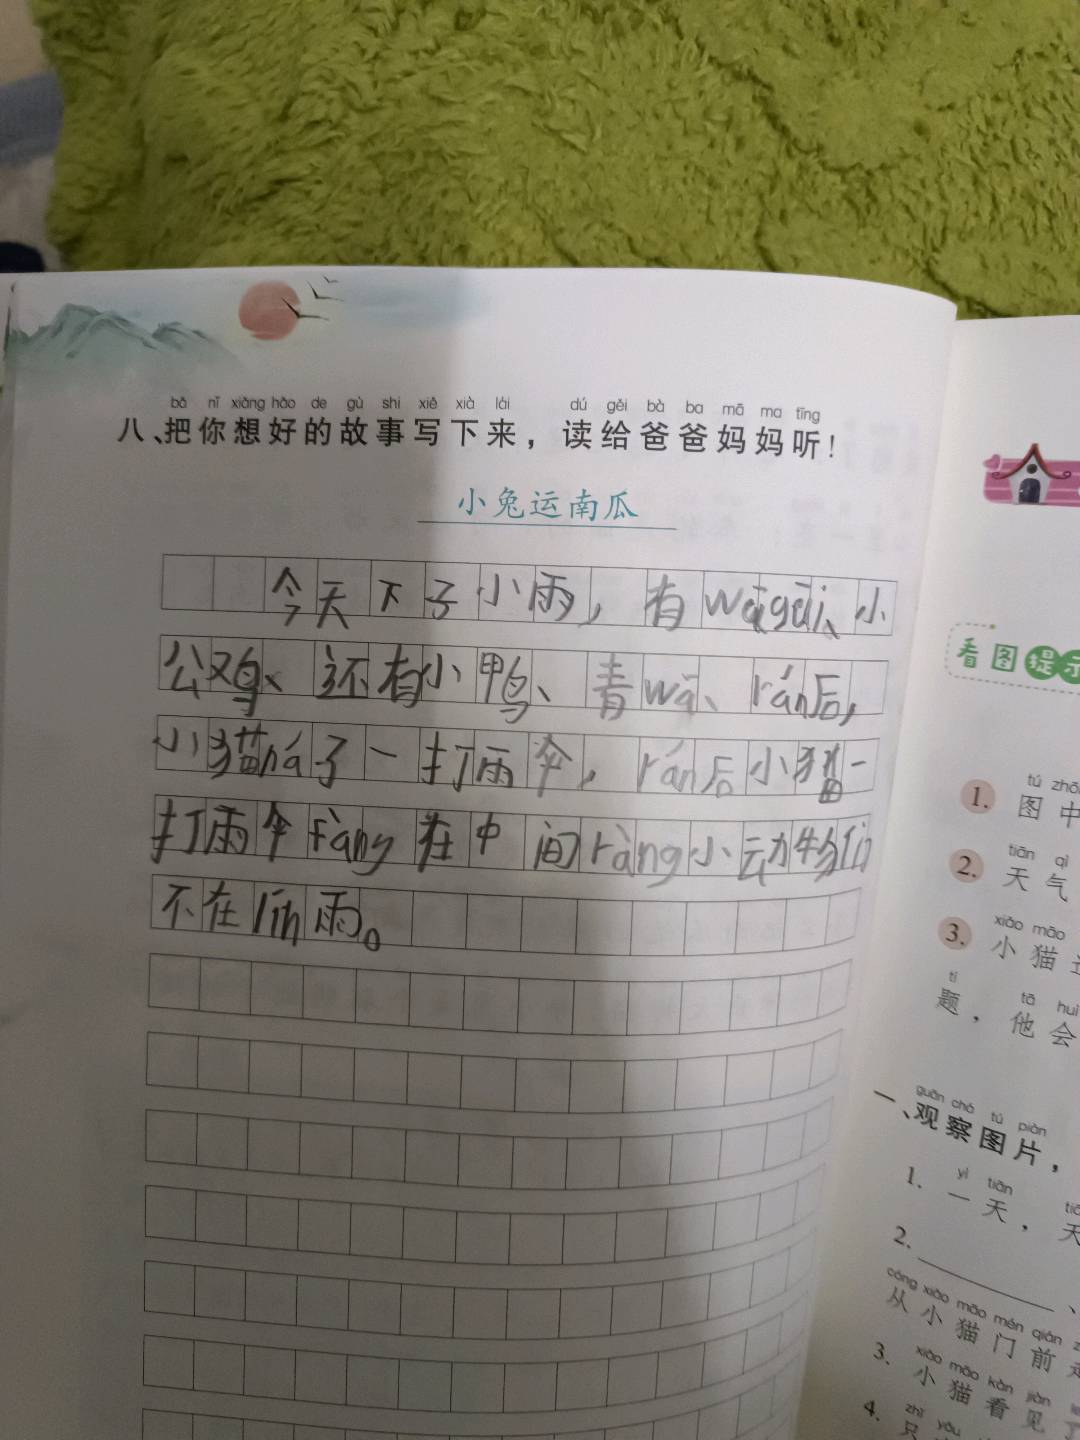 bǎ nǐ xiǎng hǎo de gù shi xiě xià lái dú gěi bà ba mā ma tīng
八、把你想好的故事写下来，读给爸爸妈妈听！
小兔运南瓜
今天下了小雨，有wūgūi、小
公鸡、还有小鸭、青wā、rán后，
小猫ná了一打雨伞，rán后小猫一
打雨伞fàng在中间ràng小动物们
不在lín雨。
看图提示
tú zhō
1. 图中
tiān qì
2. 天气
xiǎo māo
3. 小猫
tí tā huì
题，他会
guān chá tú piàn
一、观察图片，
yì tiān
1. 一天，天
2.
cóng xiǎo māo mén qián
从小猫门前
xiǎo māo kàn jiàn
3. 小猫看见了
zhǐ yǒu
4. 只